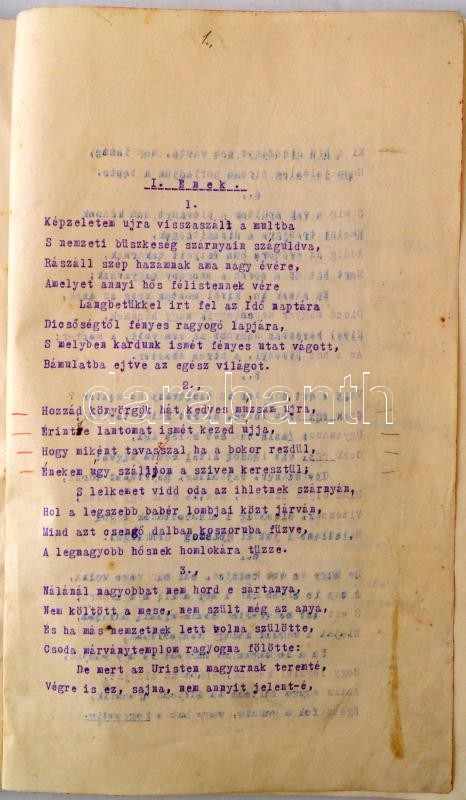 1.,
I. Ének.
1.
Képzeletem ujra visszaszáll a multba
S nemzeti büszkeség szárnyain száguldva,
Rászáll szép hazámnak ama nagy évére,
Amelyet annyi hős félistennek vére
Lángbetükkel irt fel az Idő naptára
Dicsőségtől fényes ragyogó lapjára,
S melyben kardunk ismét fényes utat vágott,
Bámulatba ejtve az egész világot.
darabanth
2.,
Hozzád könyörgök hát kedves muzsám ujra,
Érintse lantomat ismét kezed ujja,
Hogy miként tavasszal ha a bokor rezdül,
Énekem ugy szálljon a sziven keresztül;
S lelkemet vidd oda az ihletnek szárnyán,
Hol a legszebb babér lombjai közt járván,
Mind azt csengő dalban koszoruba füzve,
A legnagyobb hősnek homlokára tüzze.
3.,
Nálánál nagyobbat nem hord e sártanya,
Nem költött a mese, nem szült még az anya,
És ha más nemzetnek lett volna szülötte,
Csoda márványtemplom ragyogna fölötte:
De mert az Uristen magyarnak teremté,
Végre is ez, sajna, nem annyit jelent-é,